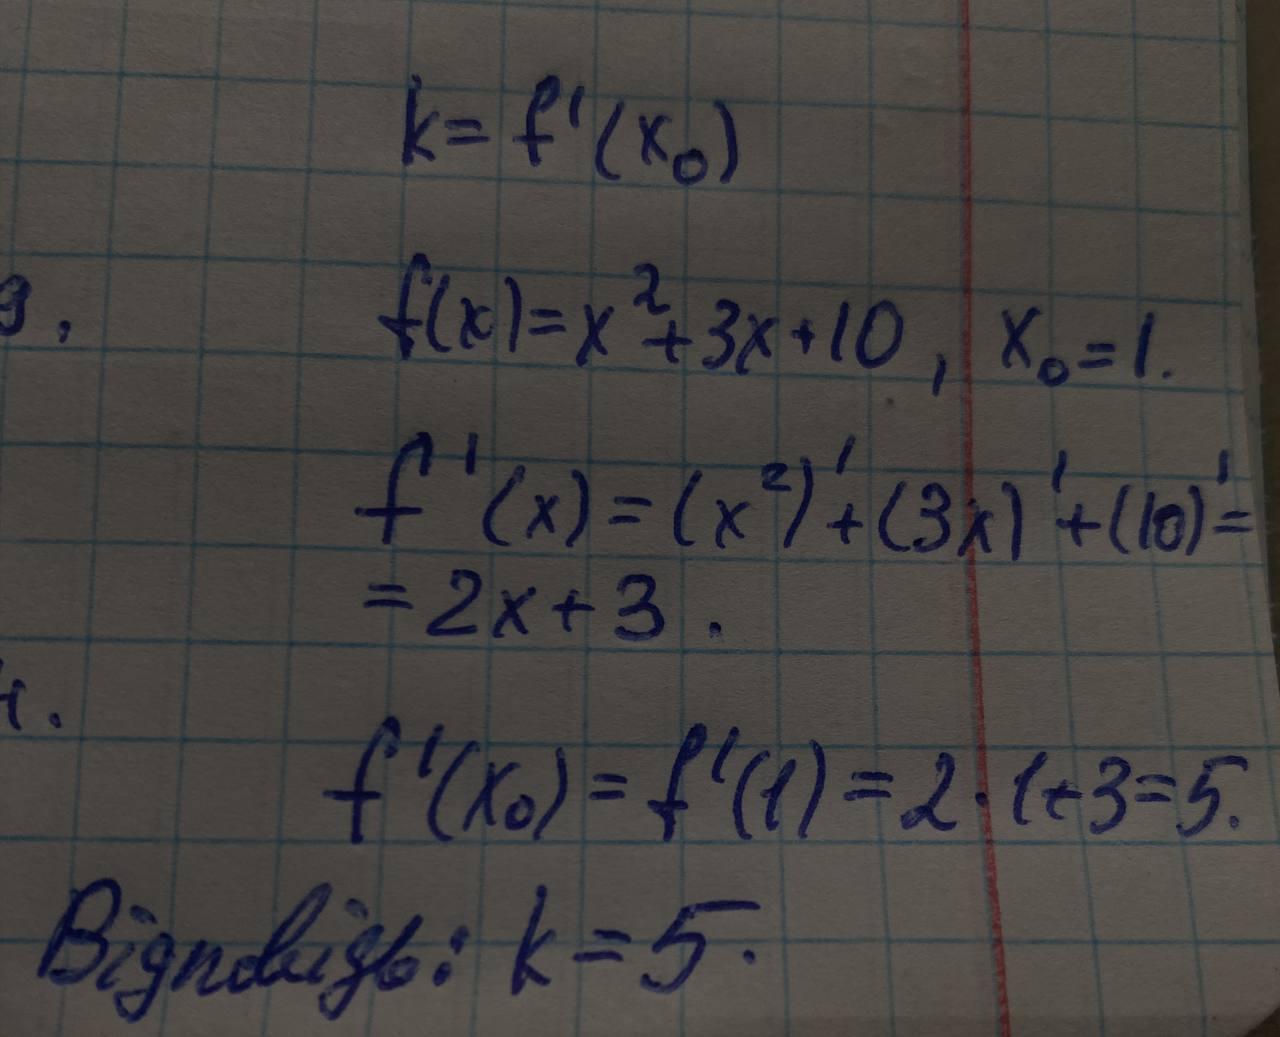 k = f'(x₀)
3. f(x) = x² + 3x + 10, x₀ = 1.
f'(x) = (x²)' + (3x)' + (10)' =
= 2x + 3.
4.
f'(x₀) = f'(1) = 2 · 1 + 3 = 5.
Відповідь: k = 5.